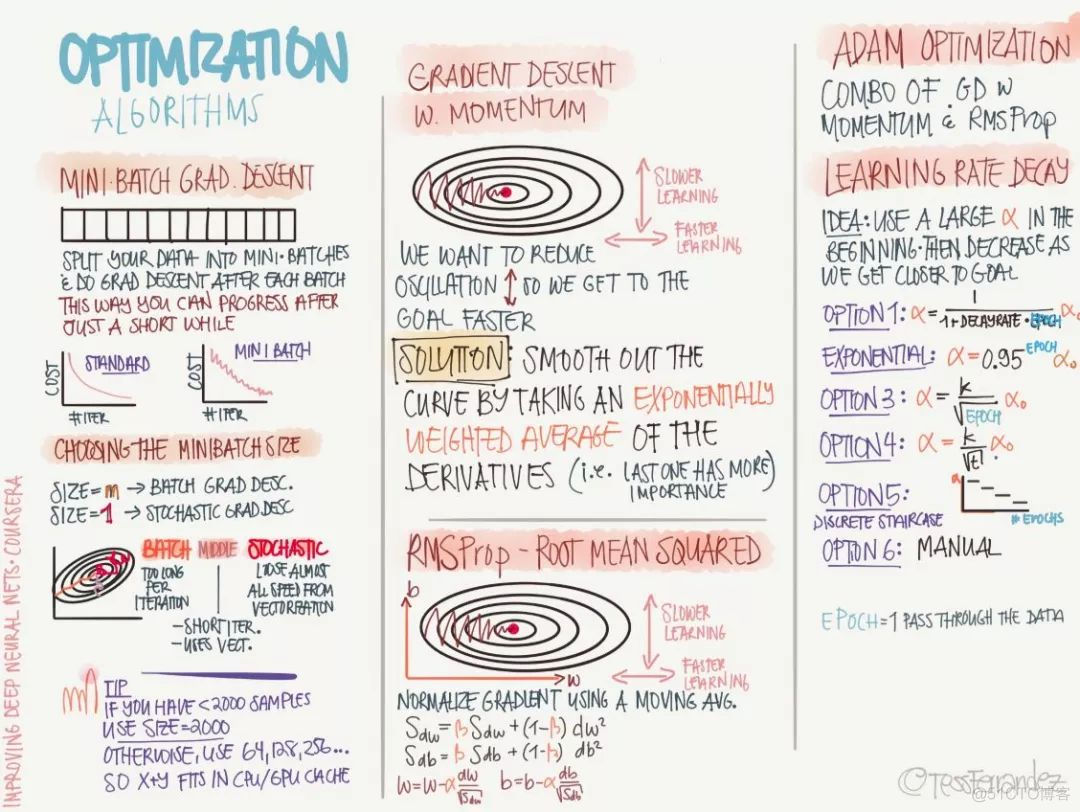 OPTIMIZATION
ALGORITHMS
MINI·BATCH GRAD. DESCENT
SPLIT YOUR DATA INTO MINI·BATCHES
& DO GRAD DESCENT AFTER EACH BATCH
THIS WAY YOU CAN PROGRESS AFTER
JUST A SHORT WHILE
COST
STANDARD
# ITER
COST
MINI BATCH
# ITER
CHOOSING THE MINIBATCH SIZE
SIZE = m → BATCH GRAD DESC.
SIZE = 1 → STOCHASTIC GRAD DESC
BATCH MIDDLE STOCHASTIC
TOO LONG
PER
ITERATION
LOSE ALMOST
ALL SPEED FROM
VECTORIZATION
- SHORT ITER.
- USES VECT.
TIP
IF YOU HAVE < 2000 SAMPLES
USE SIZE = 2000
OTHERWISE, USE 64, 128, 256...
SO X+Y FITS IN CPU/GPU CACHE
IMPROVING DEEP NEURAL NETS · COURSERA
GRADIENT DESCENT
W. MOMENTUM
SLOWER
LEARNING
FASTER
LEARNING
WE WANT TO REDUCE
OSCILLATION ↕ SO WE GET TO THE
GOAL FASTER
SOLUTION: SMOOTH OUT THE
CURVE BY TAKING AN EXPONENTIALLY
WEIGHTED AVERAGE OF THE
DERIVATIVES (i.e. LAST ONE HAS MORE
IMPORTANCE)
RMSProp - ROOT MEAN SQUARED
b
SLOWER
LEARNING
FASTER
LEARNING
w
NORMALIZE GRADIENT USING A MOVING AVG.
Sdw = β Sdw + (1-β) dw²
Sdb = β Sdb + (1-β) db²
w = w - α dw/√Sdw b = b - α db/√Sdb
ADAM OPTIMIZATION
COMBO OF GD W
MOMENTUM & RMSProp
LEARNING RATE DECAY
IDEA: USE A LARGE α IN THE
BEGINNING· THEN DECREASE AS
WE GET CLOSER TO GOAL
OPTION 1: α = 1/(1 + DECAYRATE · EPOCH) α₀
EXPONENTIAL: α = 0.95^EPOCH α₀
OPTION 3: α = k/√EPOCH α₀
OPTION 4: α = k/√t α₀
OPTION 5:
DISCRETE STAIRCASE
α
# EPOCHS
OPTION 6: MANUAL
EPOCH = 1 PASS THROUGH THE DATA
©TessFerrandez
@51CTO博客